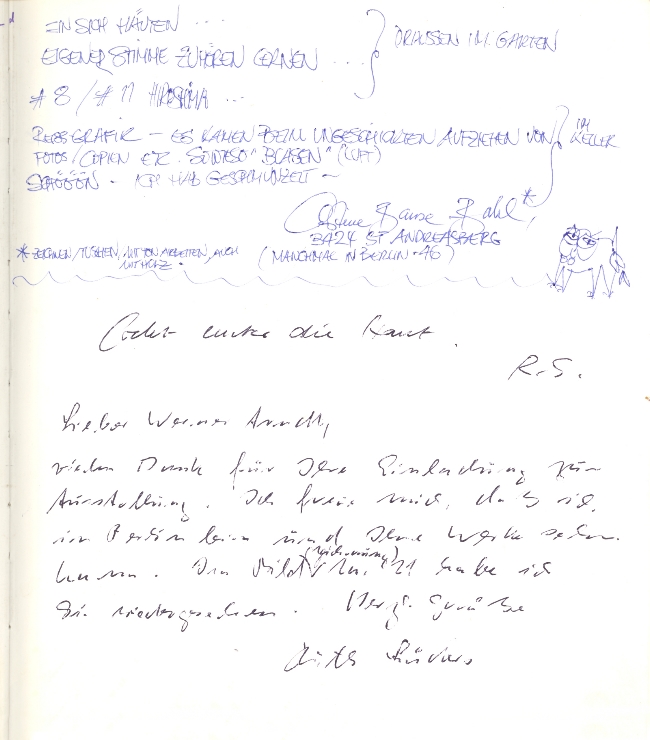 EIN SICH HÄUTEN ...
EIGENER STIMME ZUHÖREN LERNEN ... DRAUSSEN IM GARTEN
#8/#11 HIROSHIMA ...
– ES KAMEN BEIM UNGESCHICKTEN AUFZIEHEN VON IM KELLER
FOTOS/COPIEN ETC. SOWIESO "BLASEN" (LUFT)
SCHÖÖÖN – ICH HAB GESCHMUNZELT –
*
3424 ST ANDREASBERG
* ZEICHNEN/TUSCHEN, MIT TON ARBEITEN, AUCH (MANCHMAL IN BERLIN · 46)
MIT HOLZ.
unter die Haut.
R. S.
Lieber Werner
vielen Dank für Ihre Einladung zur
Ausstellung. Ich freue mich, daß ich
in Berlin bin und Ihre Werke sehen
kann. Im Bild (Zeichnung) Nr. 21 habe ich
Sie wiedergesehen. Herzl. Grüße